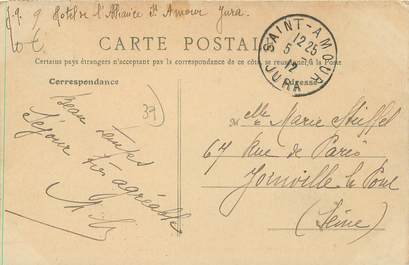 9 Hotel de l'Alliance St Amour Jura
CARTE POSTALE
Certains pays étrangers n'acceptant pas la correspondance de ce côté, se renseigner à la Poste
SAINT-AMOUR
12 25
5
12
JURA
Correspondance
Adresse
39
Beau temps
Séjour très agréable
Melle Marie
67 Rue de Paris
Joinville le Pont
(Seine)